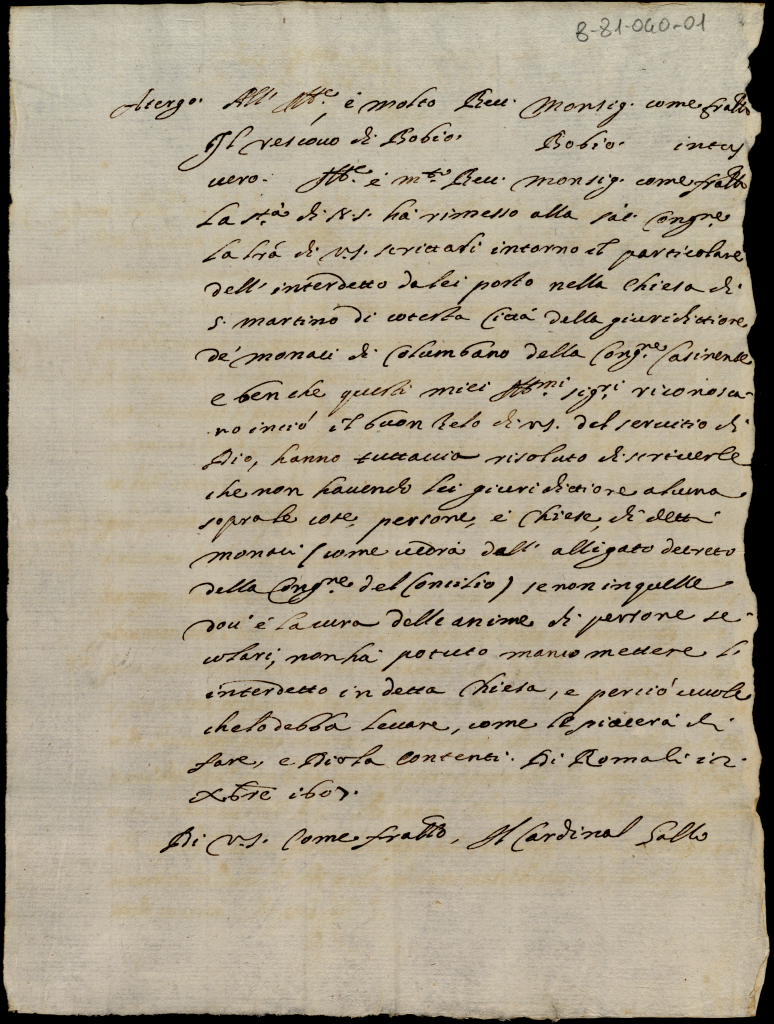 B-81-040-01
Atergo. All' Ill.re, è molto Reu. Monsig. come fratto
Il vescouo di Bobio. Bobio. intus
uero. Ill.re è m.to Reu. Monsig. come fratto
La s.tà di N.S. ha rimesso alla sac. Cong.ne
la lrã di V.S. scrittali intorno il particolare
dell' interdetto da lei posto nella Chiesa di
S. Martino di cotesta Città della giuridittione
de' monaci di Columbano della Cong.ne Casinense
e ben che questi miei Ill.mi sig.ri riconosca-
no inciò il buon Zelo di V.S. del seruitio di
Dio, hanno tuttauia risoluto di scriuerle
che non hauendo lei giuridittione alcuna
sopra le cose, persone, e Chiese, di detti
monaci (come uedrà dall' alligato decreto
della Cong.ne del Concilio) se non in quelle
dou' è la cura delle anime di persone se-
colari, non hà potuto manco mettere l'
interdetto in detta Chiesa, e perciò uuole
che lo debba leuare, come le piacerà di
fare, e Dio la contenti. Di Roma li 12.
Xbre 1607.
Di V.S. Come fratto, Il Cardinal Gallo